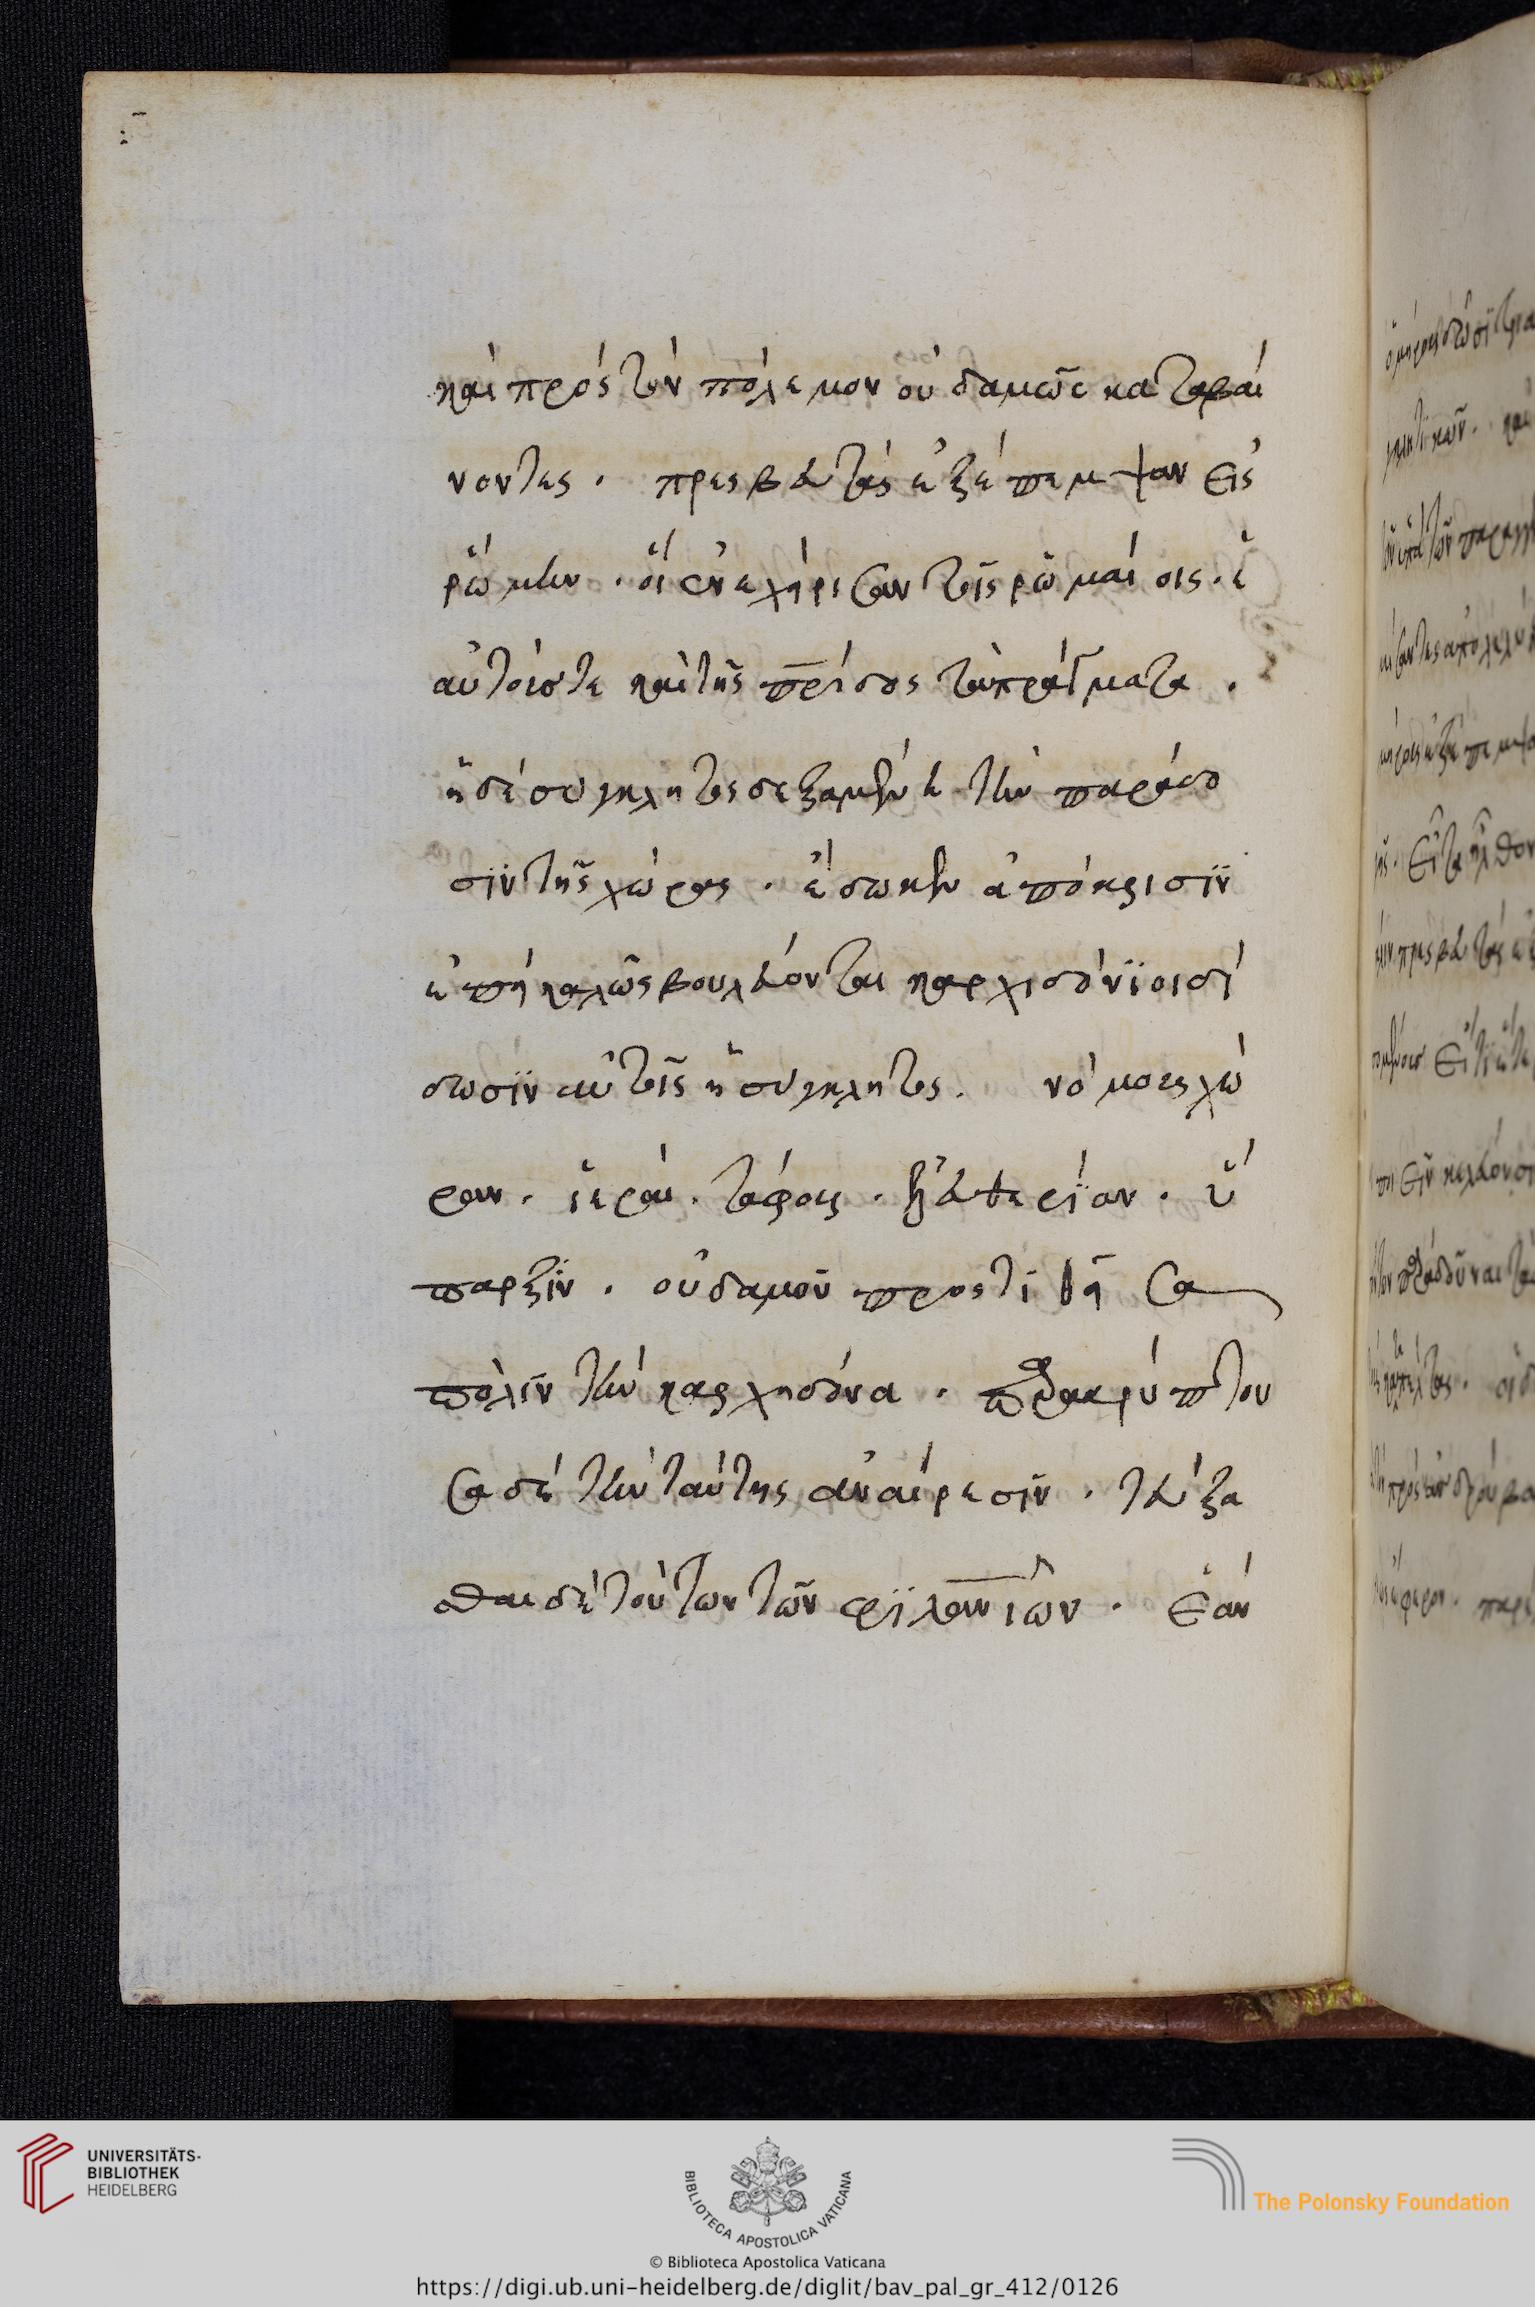 καὶ πρὸς τὸν πόλεμον οὐδαμῶς καταβαί
νοντες. πρεσβευτὰς ἐξέπεμψαν εἰς
ῥώμην. οἳ ἐνεχείρισαν τοῖς ῥωμαίοις. ἑ
αυτούς τε καὶ τῆς πρίδος τὰ πράγματα.
ἡ δὲ σύγκλητος δεξαμένη τὴν παράδο
σιν τῆς χώρας. ἔδωκεν ἀπόκρισιν
ἐπεὶ καλῶς βουλεύονται καρχηδόνιοι δί
δωσιν αὐτοῖς ἡ σύγκλητος. νόμους χώ
ραν. ἱερὰ. τάφους. ἐλευθερίαν. ὕ
παρξιν. οὐδαμοῦ προστιθεῖσα
πόλιν τὴν καρχηδόνα. παρακρύπτου
σα δὲ τὴν ταύτης ἀναίρεσιν. τεύξα
σθαι δὲ τούτων τῶν φιλανιῶν. ἐὰν
UNIVERSITÄTS-
BIBLIOTHEK
HEIDELBERG
BIBLIOTECA APOSTOLICA VATICANA
The Polonsky Foundation
© Biblioteca Apostolica Vaticana
https://digi.ub.uni-heidelberg.de/diglit/bav_pal_gr_412/0126